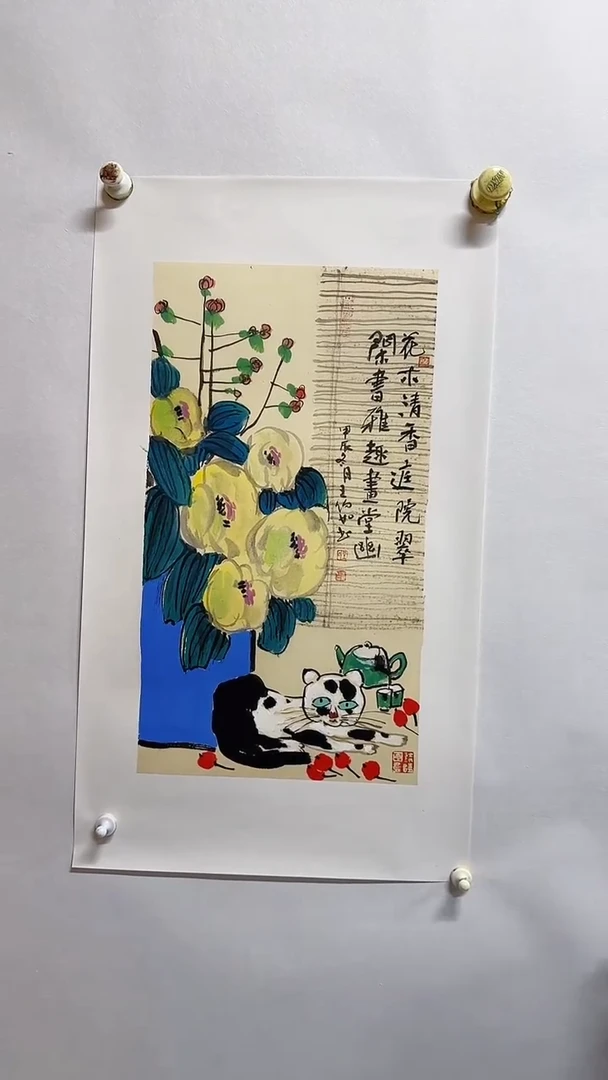 花木清香庭院翠
琹書雅趣畫堂幽
甲辰冬月